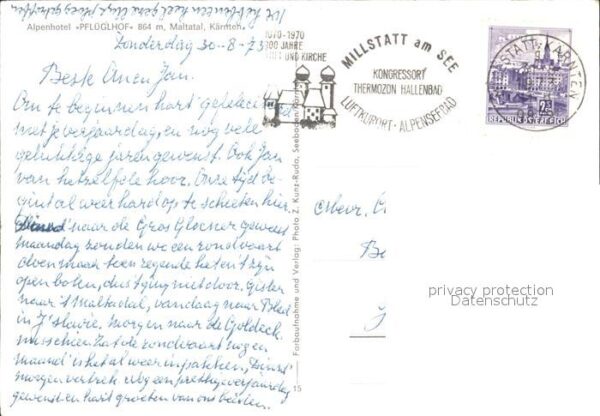 We hebben het heel gezellig
Alpenhotel «PFLÜGLHOF» 864 m, Maltatal, Kärnten
Donderdag 30-8-73
Beste Anen Jan.
Om te beginnen hart gefeliciteerd
met je verjaardag, en nog vele
gelukkige jaren gewenst. Ook Jan
van hetzelfde hoor. Onze tijd be
gint al weer hard op te schieten hier.
naar de Gros Glocner geweest
maandag zouden we een rondvaart
doen maar toen regende het en 't zijn
open boten, dus ging niet door. Gister
naar 't Maltadal, vandaag naar Bled
in J'slavië, morgen naar de Goldeck
misschien Zat. de rondvaart nog en
maandag is het al weer inpakken, Dinsd.
morgen vertrek. Nog een prettige verjaardag
gewenst en hart. groeten van ons beiden.
1070-1970
900 JAHRE
STIFT UND KIRCHE
MILLSTATT am SEE
KONGRESSORT
THERMOZON HALLENBAD
LUFTKURORT · ALPENSEEBAD
REPUBLIK ÖSTERREICH
Farbaufnahme und Verlag: Photo Z. Kunz-Ruda, Seeboden
15
privacy protection
Datenschutz